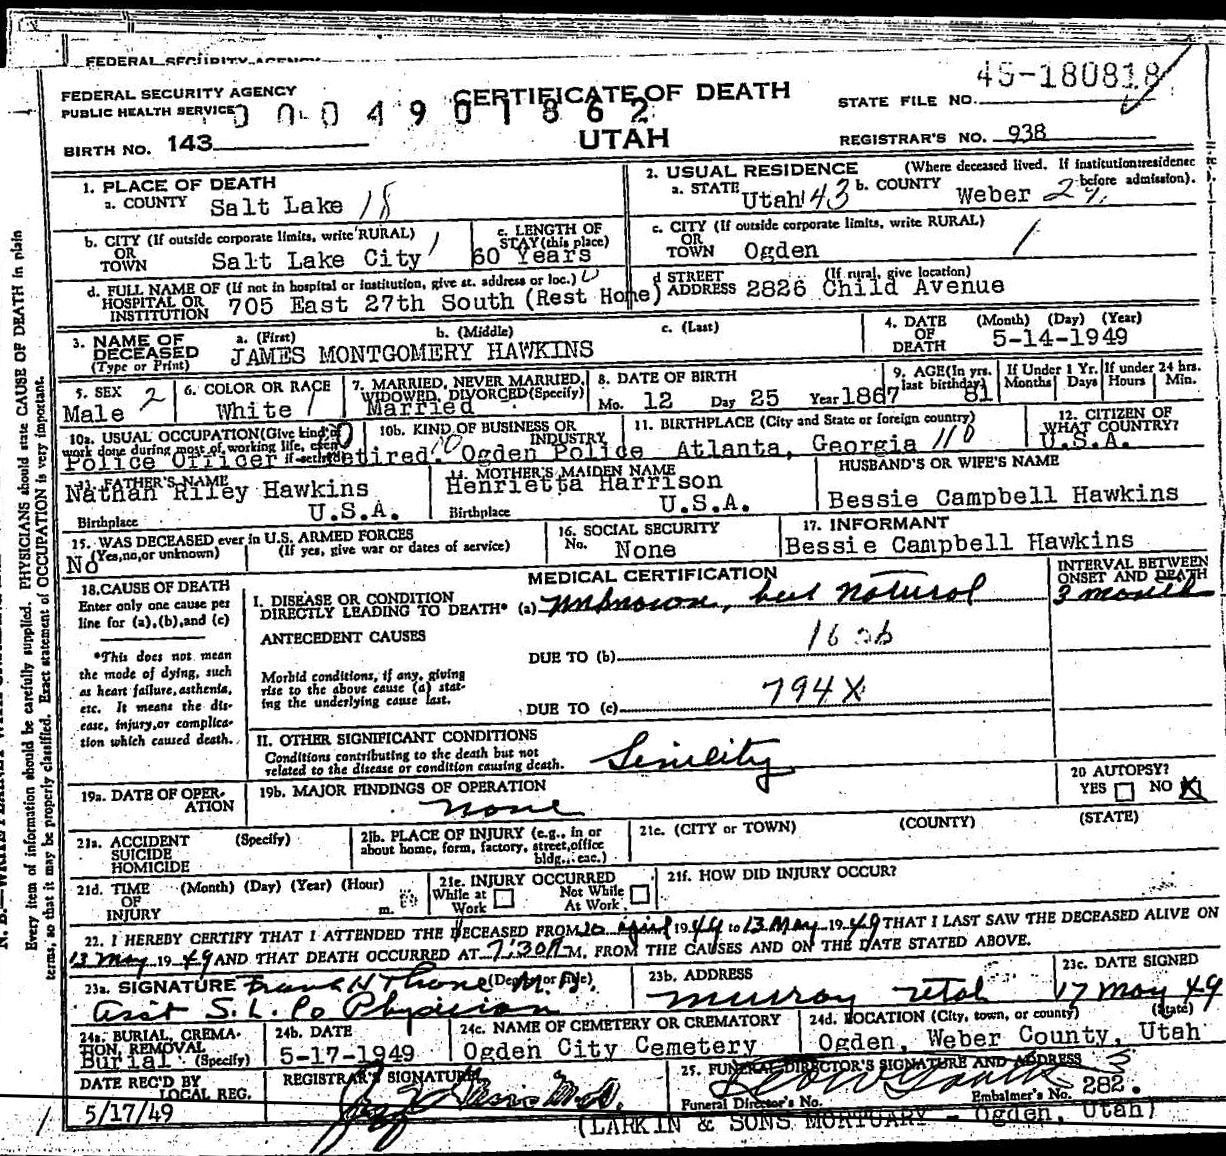 FEDERAL SECURITY AGENCY
FEDERAL SECURITY AGENCY
PUBLIC HEALTH SERVICE
CERTIFICATE OF DEATH
UTAH
0004901862
BIRTH NO. 143
45-180818
STATE FILE NO.
REGISTRAR'S NO. 938
1. PLACE OF DEATH
a. COUNTY Salt Lake 18
2. USUAL RESIDENCE (Where deceased lived. If institution: residence before admission).
a. STATE Utah 43 b. COUNTY Weber
b. CITY (If outside corporate limits, write RURAL)
OR
TOWN Salt Lake City 1
c. LENGTH OF
STAY (this place)
60 Years
c. CITY (If outside corporate limits, write RURAL)
OR
TOWN Ogden 1
d. FULL NAME OF (If not in hospital or institution, give st. address or loc.)
HOSPITAL OR
INSTITUTION 705 East 27th South (Rest Home)
d STREET (If rural, give location)
ADDRESS 2826 Child Avenue
3. NAME OF
DECEASED
(Type or Print)
a. (First) b. (Middle) c. (Last)
JAMES MONTGOMERY HAWKINS
4. DATE
OF
DEATH
(Month) (Day) (Year)
5-14-1949
5. SEX 2
Male
6. COLOR OR RACE
White 1
7. MARRIED, NEVER MARRIED,
WIDOWED, DIVORCED (Specify)
Married
8. DATE OF BIRTH
Mo. 12 Day 25 Year 1867
9. AGE (In yrs.
last birthday)
81
If Under 1 Yr.
Months Days
If under 24 hrs.
Hours Min.
10a. USUAL OCCUPATION (Give kind of
work done during most of working life, even
if retired)
Police Officer retired.
10b. KIND OF BUSINESS OR
INDUSTRY
Ogden Police
11. BIRTHPLACE (City and State or foreign country)
Atlanta, Georgia
12. CITIZEN OF
WHAT COUNTRY?
U.S.A.
13. FATHER'S NAME
Nathan Riley Hawkins
Birthplace U.S.A.
14. MOTHER'S MAIDEN NAME
Henrietta Harrison
Birthplace U.S.A.
HUSBAND'S OR WIFE'S NAME
Bessie Campbell Hawkins
15. WAS DECEASED ever in U.S. ARMED FORCES
No (Yes, no, or unknown) (If yes, give war or dates of service)
16. SOCIAL SECURITY
No. None
17. INFORMANT
Bessie Campbell Hawkins
18. CAUSE OF DEATH
Enter only one cause per
line for (a), (b), and (c)
*This does not mean
the mode of dying, such
as heart failure, asthenia,
etc. It means the dis-
ease, injury, or complica-
tion which caused death.
MEDICAL CERTIFICATION
INTERVAL BETWEEN
ONSET AND DEATH
I. DISEASE OR CONDITION
DIRECTLY LEADING TO DEATH* (a) unknown, but natural
3 months
ANTECEDENT CAUSES
DUE TO (b)
Morbid conditions, if any, giving
rise to the above cause (a) stat-
ing the underlying cause last.
794X
DUE TO (c)
II. OTHER SIGNIFICANT CONDITIONS
Conditions contributing to the death but not
related to the disease or condition causing death.
Senility
19a. DATE OF OPER-
ATION
19b. MAJOR FINDINGS OF OPERATION
none
20 AUTOPSY?
YES NO X
21a. ACCIDENT (Specify)
SUICIDE
HOMICIDE
21b. PLACE OF INJURY (e.g., in or
about home, form, factory, street, office
bldg., eac.)
21c. (CITY or TOWN) (COUNTY) (STATE)
21d. TIME (Month) (Day) (Year) (Hour)
OF
INJURY m.
21e. INJURY OCCURRED
While at Work Not While At Work
21f. HOW DID INJURY OCCUR?
22. I HEREBY CERTIFY THAT I ATTENDED THE DECEASED FROM 20 april 1949 to 13 May 1949 THAT I LAST SAW THE DECEASED ALIVE ON
13 May 1949 AND THAT DEATH OCCURRED AT 7:30 A M, FROM THE CAUSES AND ON THE DATE STATED ABOVE.
23a. SIGNATURE (Degree or title)
M.D.
Asst S. L. Co Physician
23b. ADDRESS
Murray Utah
23c. DATE SIGNED
17 May 49
24a. BURIAL, CREMA-
TION, REMOVAL
Burial (Specify)
24b. DATE
5-17-1949
24c. NAME OF CEMETERY OR CREMATORY
Ogden City Cemetery
24d. LOCATION (City, town, or county) (State)
Ogden, Weber County, Utah
DATE REC'D BY
LOCAL REG.
5/17/49
REGISTRAR'S SIGNATURE
25. FUNERAL DIRECTOR'S SIGNATURE AND ADDRESS
Funeral Director's No. Embalmer's No. 282.
(LARKIN & SONS MORTUARY - Ogden, Utah)
Every item of information should be carefully supplied. PHYSICIANS should state CAUSE OF DEATH in plain
terms, so that it may be properly classified. Exact statement of OCCUPATION is very important.